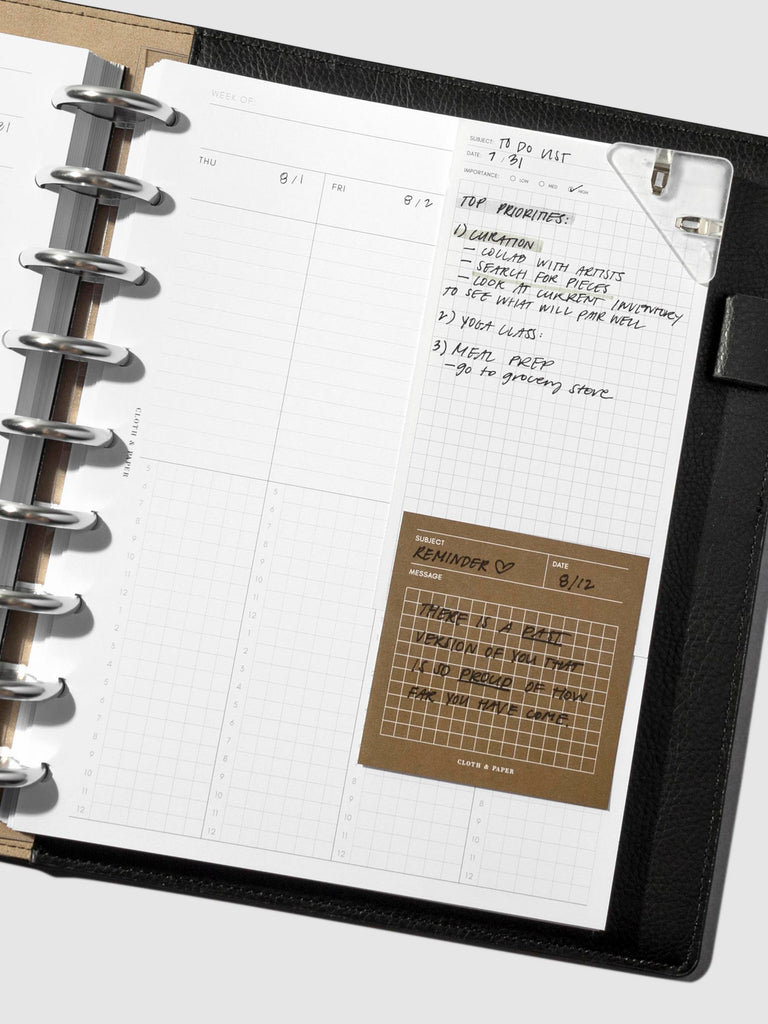 31
WEEK OF:
THU
8/1
FRI
8/2
CLOTH & PAPER
5
6
7
8
9
10
11
12
1
2
3
4
5
6
7
8
9
10
11
12
5
6
7
8
9
10
11
12
1
2
3
4
5
6
7
8
9
10
11
12
8
9
10
11
12
8
9
10
11
12
SUBJECT: TO DO LIST
DATE: 7/31
IMPORTANCE: LOW MED ✓ HIGH
TOP PRIORITIES:
1) CURATION
- COLLAB WITH ARTISTS
- SEARCH FOR PIECES
- LOOK AT CURRENT INVENTORY
TO SEE WHAT WILL PAIR WELL
2) YOGA CLASS:
3) MEAL PREP
- go to grocery store
SUBJECT
REMINDER ♡
DATE
8/12
MESSAGE
THERE IS A PAST
VERSION OF YOU THAT
IS SO PROUD OF HOW
FAR YOU HAVE COME
CLOTH & PAPER